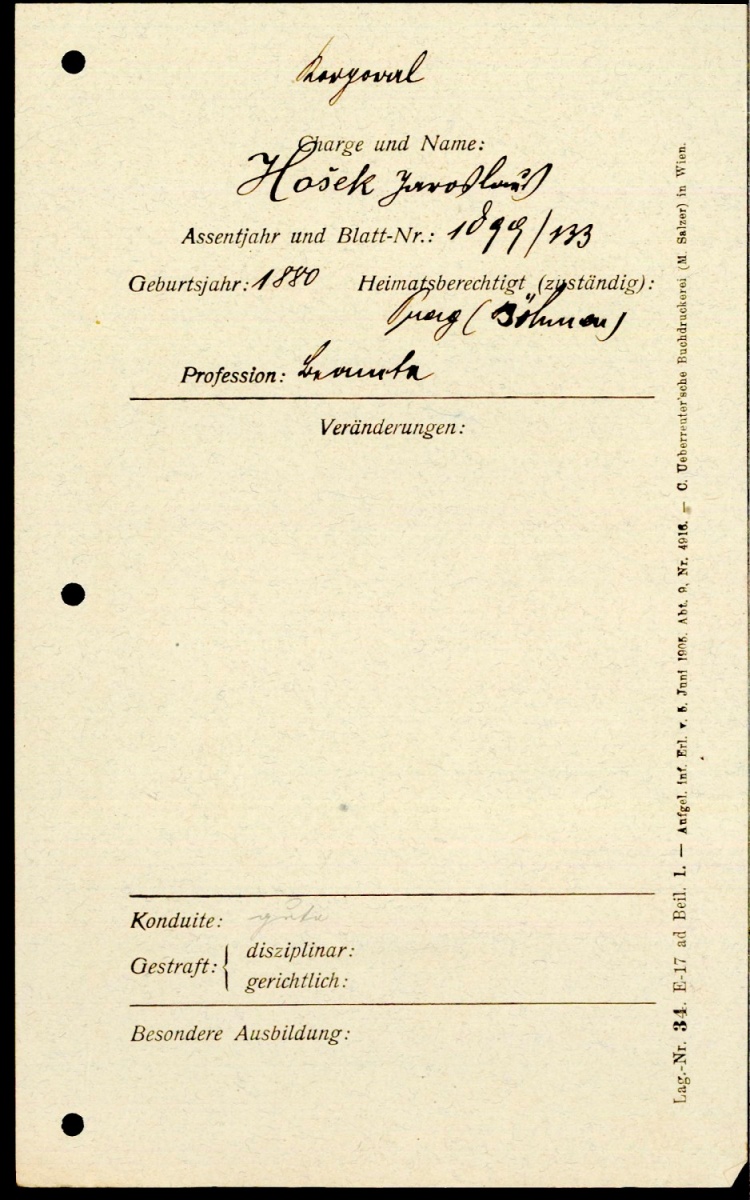 Korporal
Charge und Name:
Hošek Jaroslaus
Assentjahr und Blatt-Nr.: 1899/133
Geburtsjahr: 1880 Heimatsberechtigt (zuständig):
Prag (Böhmen)
Profession: Beamte
Veränderungen:
Konduite: gute
Gestraft: { disziplinar:
gerichtlich:
Besondere Ausbildung:
Lag.-Nr. 34. E-17 ad Beil. 1. — Aufgel. inf. Erl. v. 5. Juni 1905. Abt. 9, Nr. 4916. — C. Ueberreuter'sche Buchdruckerei (M. Salzer) in Wien.